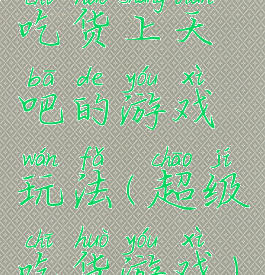 chī huò shàng tiān
吃货上天
bā de yóu xì
吧的游戏
wán fǎ chāo jí
玩法(超级
chī huò yóu xì
吃货游戏)